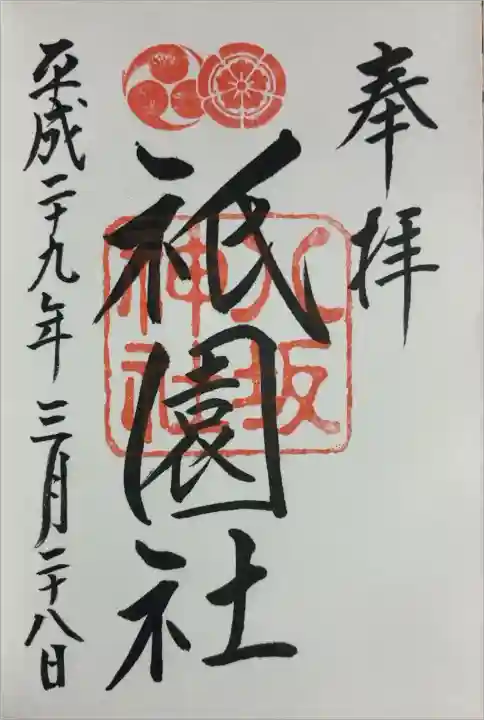 奉拝
祇園社
八坂
神社
平成二十九年三月二十八日